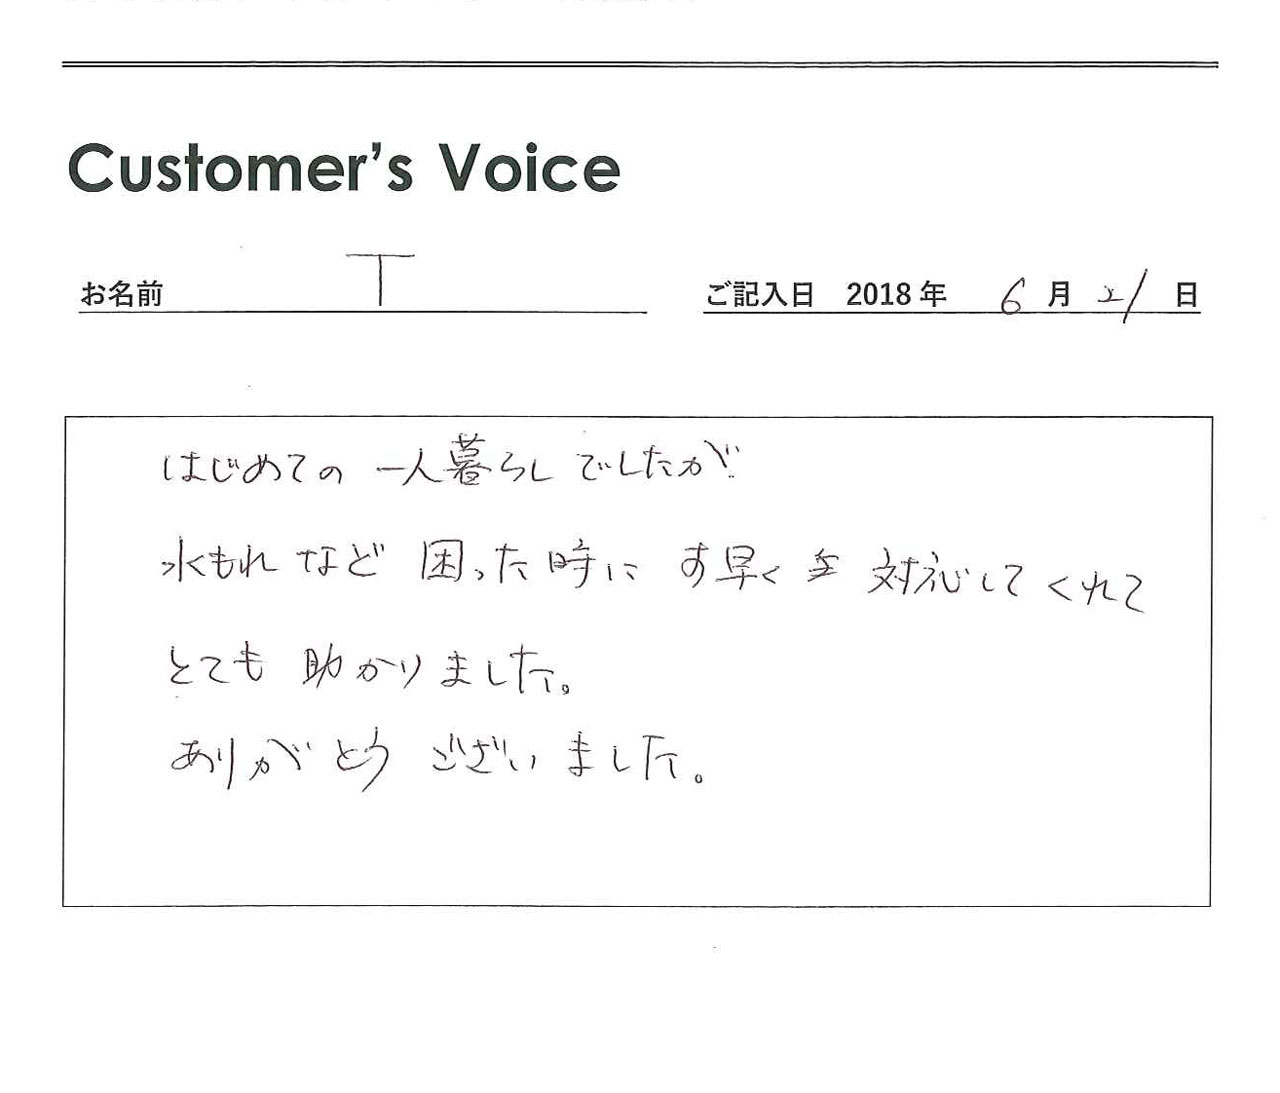 Customer's Voice
お名前 T ご記入日 2018年 6月 21日
はじめての 一人暮らし でしたが
水もれ など 困った時に す早く 対応して くれて
とても 助かりました。
ありがとう ございました。